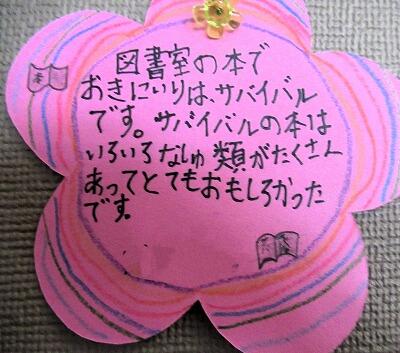 図書室の本で
おきにいりは、サバイバル
です。サバイバルの本は
いろいろなしゅ類がたくさん
あってとてもおもしろかった
です。
本